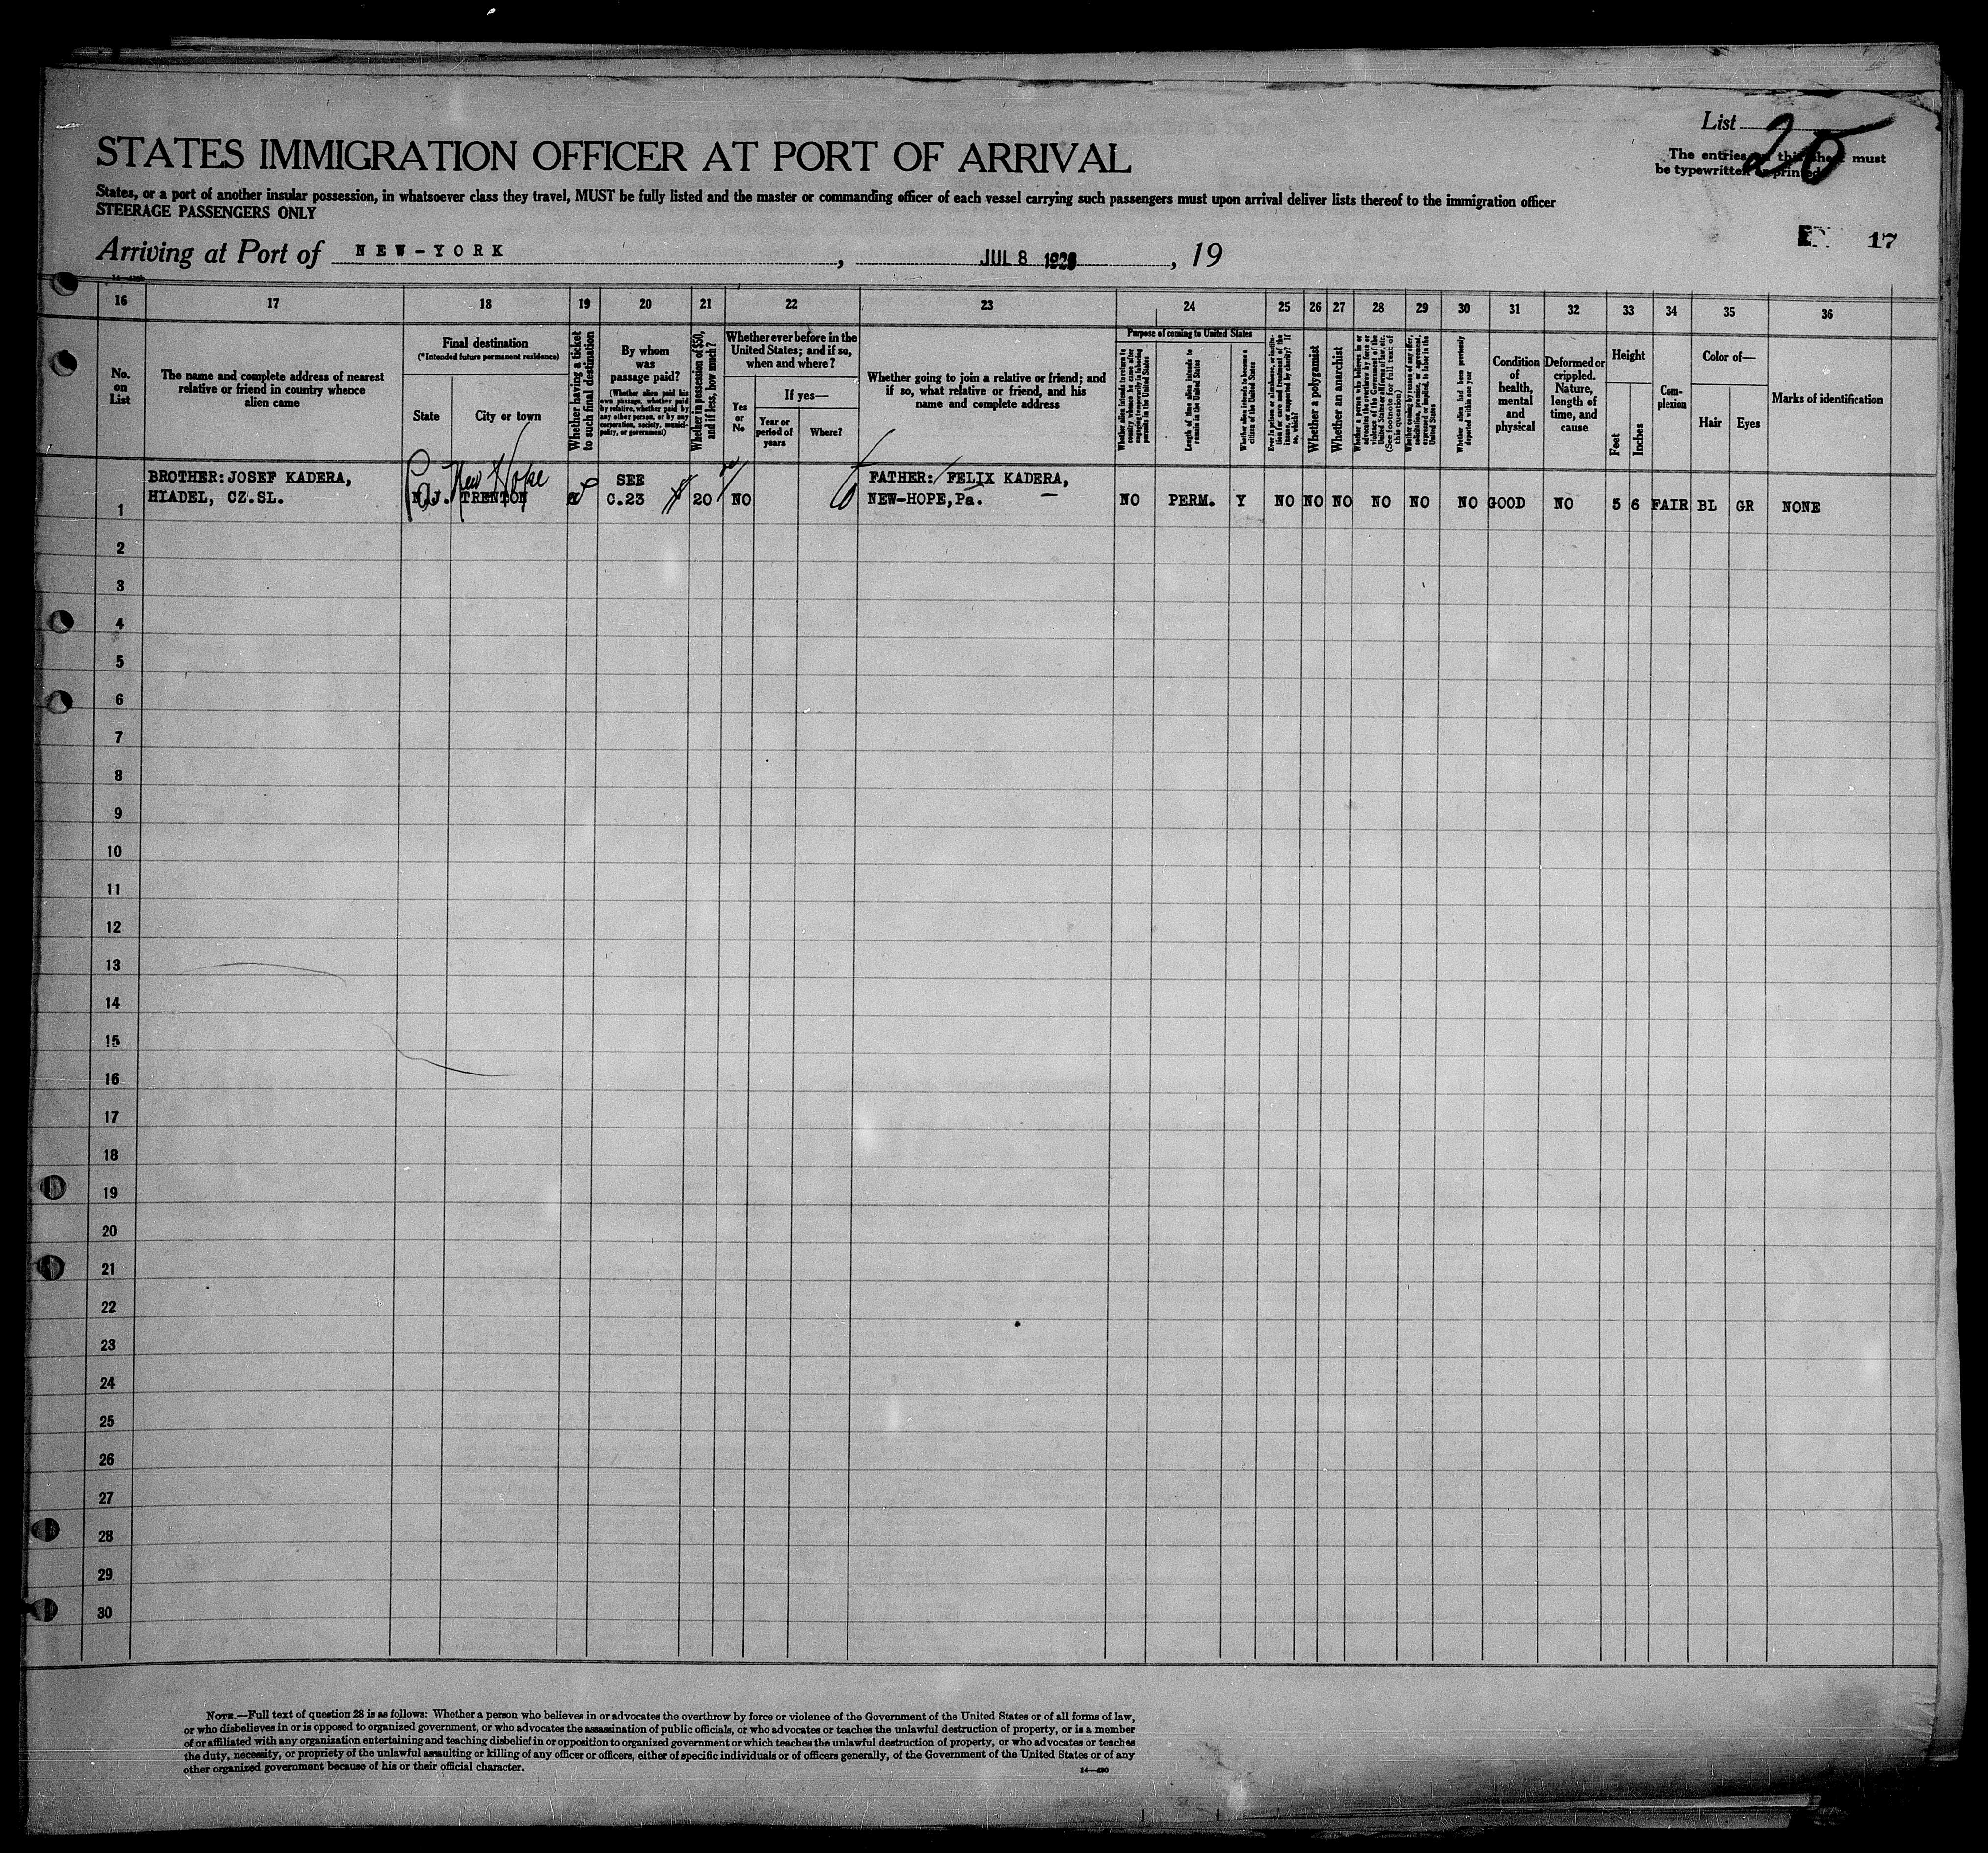 List 20
STATES IMMIGRATION OFFICER AT PORT OF ARRIVAL
The entries on this sheet must
be typewritten or printed
States, or a port of another insular possession, in whatsoever class they travel, MUST be fully listed and the master or commanding officer of each vessel carrying such passengers must upon arrival deliver lists thereof to the immigration officer
STEERAGE PASSENGERS ONLY
17
Arriving at Port of NEW-YORK, JUL 8 1926, 19
16 17 18 19 20 21 22 23 24 25 26 27 28 29 30 31 32 33 34 35 36
No. on List
The name and complete address of nearest
relative or friend in country whence
alien came
Final destination
(*Intended future permanent residence)
State
City or town
Whether having a ticket
to such final destination
By whom
was
passage paid?
(Whether alien paid his
own passage, whether paid
by relative, whether paid by
any other person, or by any
corporation, society, munici-
pality, or government)
Whether in possession of $50,
and if less, how much?
Whether ever before in the
United States; and if so,
when and where?
Yes
or
No
If yes—
Year or
period of
years
Where?
Whether going to join a relative or friend; and
if so, what relative or friend, and his
name and complete address
Purpose of coming to United States
Whether alien intends to return to
country whence he came after
engaging temporarily in laboring
pursuits in the United States
Length of time alien intends to
remain in the United States
Whether alien intends to become a
citizen of the United States
Ever in prison or almshouse, or institu-
tion for care and treatment of the
insane, or supported by charity? If
so, which?
Whether a polygamist
Whether an anarchist
Whether a person who believes in or
advocates the overthrow by force or
violence of the Government of the
United States or all forms of law, etc.
(See footnote for full text of
this question)
Whether coming by reason of any offer,
solicitation, promise, or agreement,
expressed or implied, to labor in the
United States
Whether alien had been previously
deported within one year
Condition
of
health,
mental
and
physical
Deformed or
crippled.
Nature,
length of
time, and
cause
Height
Feet
Inches
Com-
plexion
Color of—
Hair
Eyes
Marks of identification
Pa New Hope
BROTHER: JOSEF KADERA, SEE FATHER: FELIX KADERA,
HIADEL, CZ.SL. N.J. TRENTON C.23 $ 20 NO NEW-HOPE, Pa.
1 NO PERM. Y NO NO NO NO NO NO GOOD NO 5 6 FAIR BL GR NONE
2
3
4
5
6
7
8
9
10
11
12
13
14
15
16
17
18
19
20
21
22
23
24
25
26
27
28
29
30
NOTE.—Full text of question 28 is as follows: Whether a person who believes in or advocates the overthrow by force or violence of the Government of the United States or of all forms of law,
or who disbelieves in or is opposed to organized government, or who advocates the assassination of public officials, or who advocates or teaches the unlawful destruction of property, or is a member
of or affiliated with any organization entertaining and teaching disbelief in or opposition to organized government or which teaches the unlawful destruction of property, or who advocates or teaches
the duty, necessity, or propriety of the unlawful assaulting or killing of any officer or officers, either of specific individuals or of officers generally, of the Government of the United States or of any
other organized government because of his or their official character.
14—430